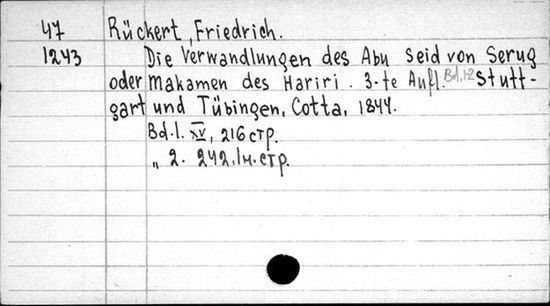 47 Rückert, Friedrich.
1243 Die Verwandlungen des Abu Seid von Serug
oder Makamen des Hariri. 3-te Aufl. Bd.1-2 Stutt-
gart und Tübingen, Cotta, 1844.
Bd.1. XV, 216 стр.
„ 2. 242, IН. стр.